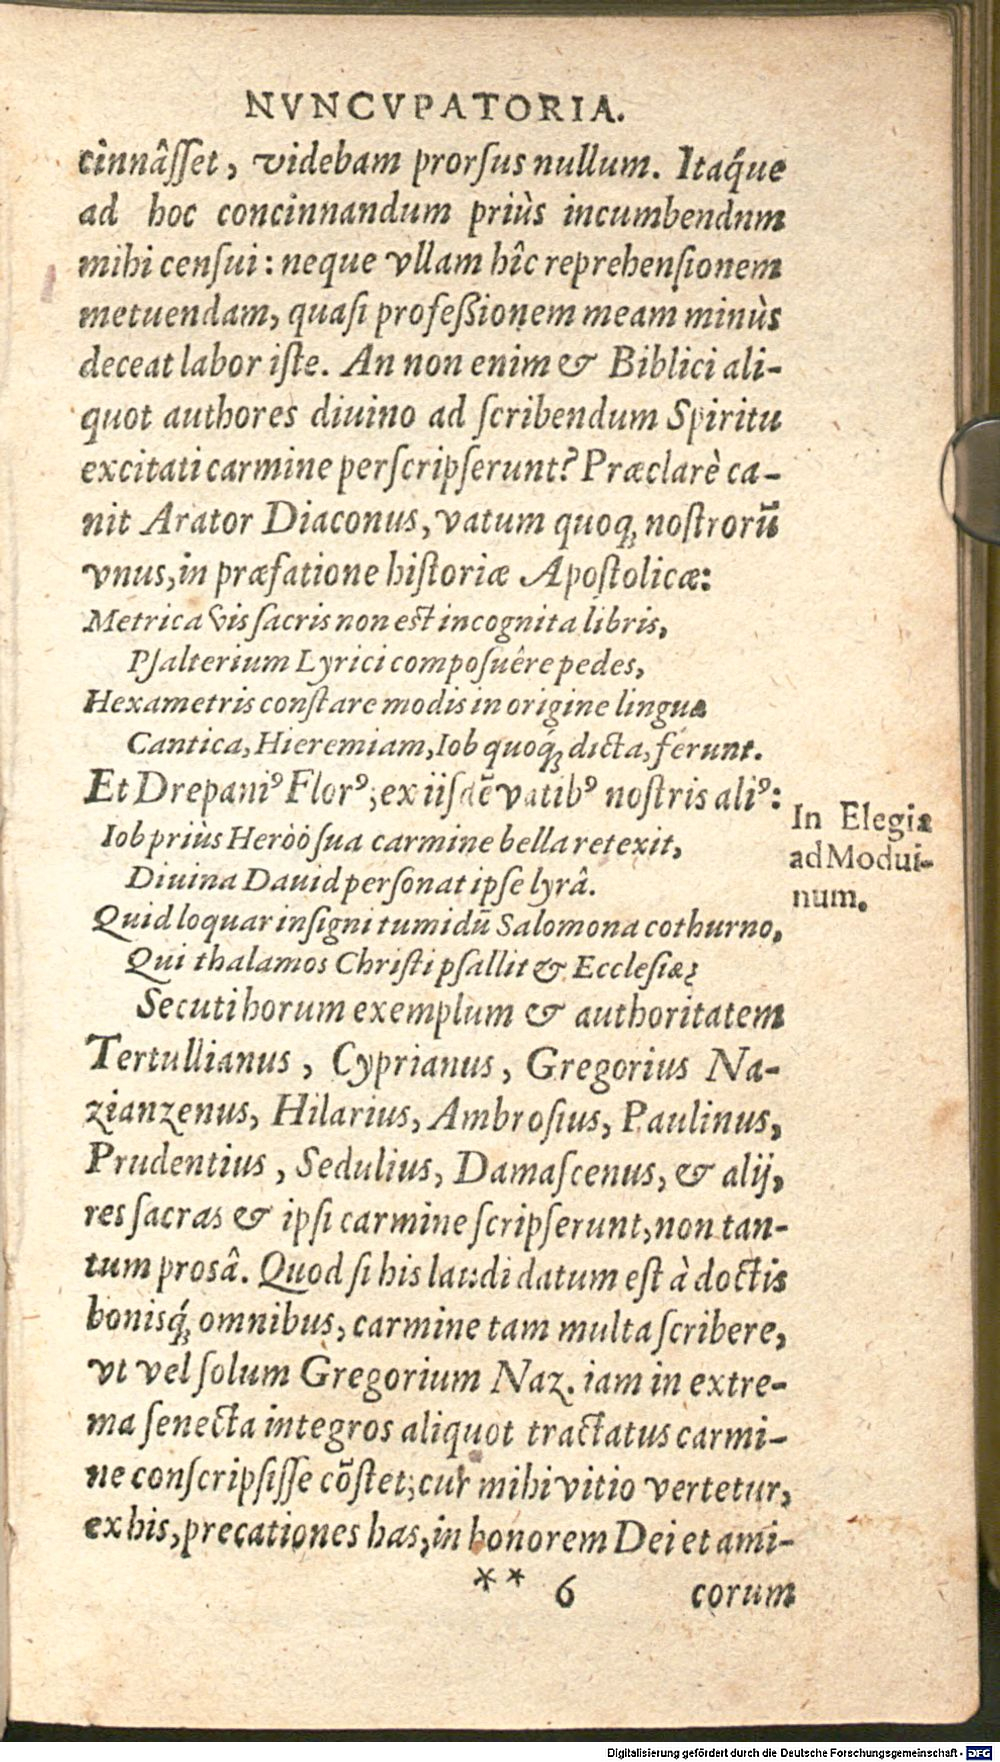 NVNCVPATORIA.
cinnâſſet, videbam prorſus nullum. Itaq́ue
ad hoc concinnandum priùs incumbendnm
mihi cenſui: neque vllam hîc reprehenſionem
metuendam, quaſi profeßionem meam minùs
deceat labor iſte. An non enim & Biblici ali-
quot authores diuino ad ſcribendum Spiritu
excitati carmine perſcripſerunt? Præclarè ca-
nit Arator Diaconus, vatum quoq; noſtrorū
vnus, in præfatione hiſtoriæ Apoſtolicæ:
Metrica vis ſacris non eſt incognita libris,
Pſalterium Lyrici compoſuêre pedes,
Hexametris conſtare modis in origine linguæ
Cantica, Hieremiam, Iob quoq́; dicta, ferunt.
Et Drepaniꝰ Florꝰ, ex iiſdē vatibꝰ noſtris aliꝰ:
In Elegia
ad Modui-
num.
Iob priùs Heròò ſua carmine bella retexit,
Diuina Dauid perſonat ipſe lyrâ.
Quid loquar inſigni tumidū Salomona cothurno,
Qui thalamos Chriſti pſallit & Eccleſiæ?
Secuti horum exemplum & authoritatem
Tertullianus, Cyprianus, Gregorius Na-
zianzenus, Hilarius, Ambroſius, Paulinus,
Prudentius, Sedulius, Damaſcenus, & alij,
res ſacras & ipſi carmine ſcripſerunt, non tan-
tum prosâ. Quod ſi his laudi datum eſt à doctis
bonisq́; omnibus, carmine tam multa ſcribere,
vt vel ſolum Gregorium Naz. iam in extre-
ma ſenecta integros aliquot tractatus carmi-
ne conſcripſiſſe cōſtet; cur mihi vitio vertetur,
ex his, precationes has, in honorem Dei et ami-
** 6 corum
Digitalisierung gefördert durch die Deutsche Forschungsgemeinschaft - DFG